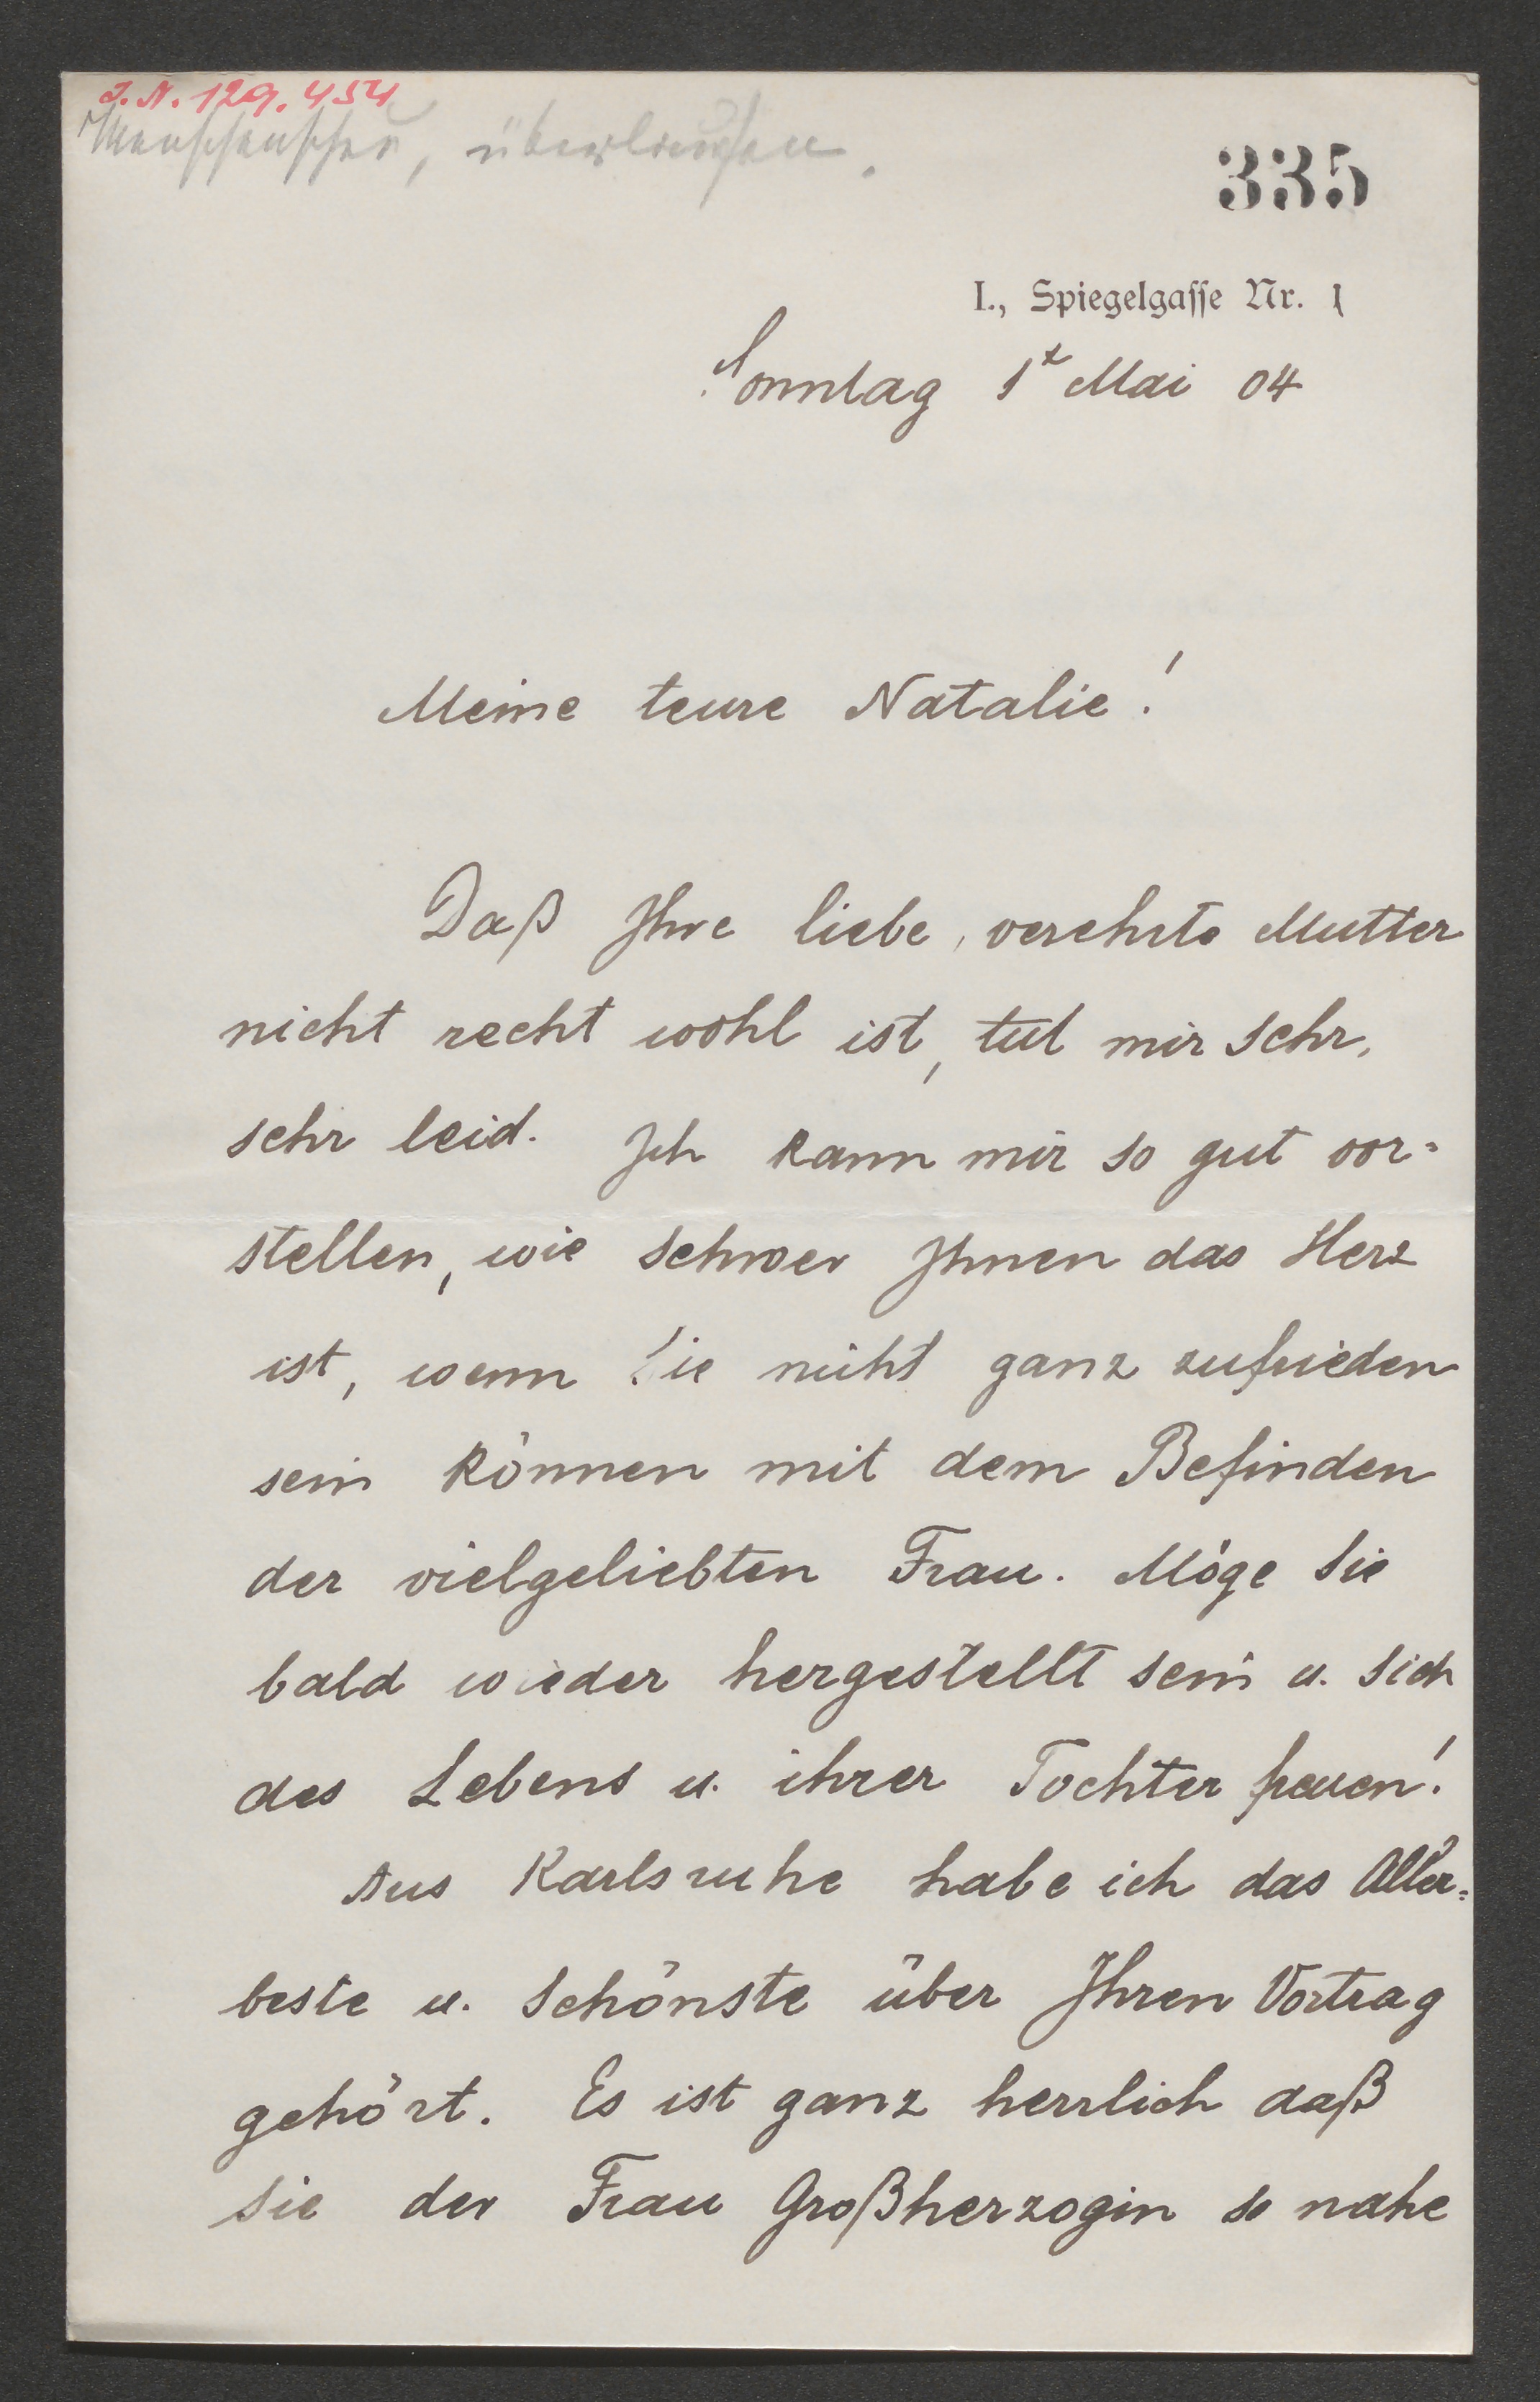 J. N. 129.454
Menschenscheu, überlaufen.
335
I., Spiegelgasse Nr. 1
Sonntag 1t Mai 04
Meine teure Natalie!
Daß Ihre liebe, verehrte Mutter
nicht recht wohl ist, tut mir sehr,
sehr leid. Ich kann mir so gut vor=
stellen, wie schwer Ihnen das Herz
ist, wenn Sie nicht ganz zufrieden
sein können mit dem Befinden
der vielgeliebten Frau. Möge Sie
bald wieder hergestellt sein u. sich
des Lebens u. ihrer Tochter freuen!
Aus Karlsruhe habe ich das Aller=
beste u. Schönste über Ihren Vortrag
gehört. Es ist ganz herrlich daß
Sie der Frau Großherzogin so nahe